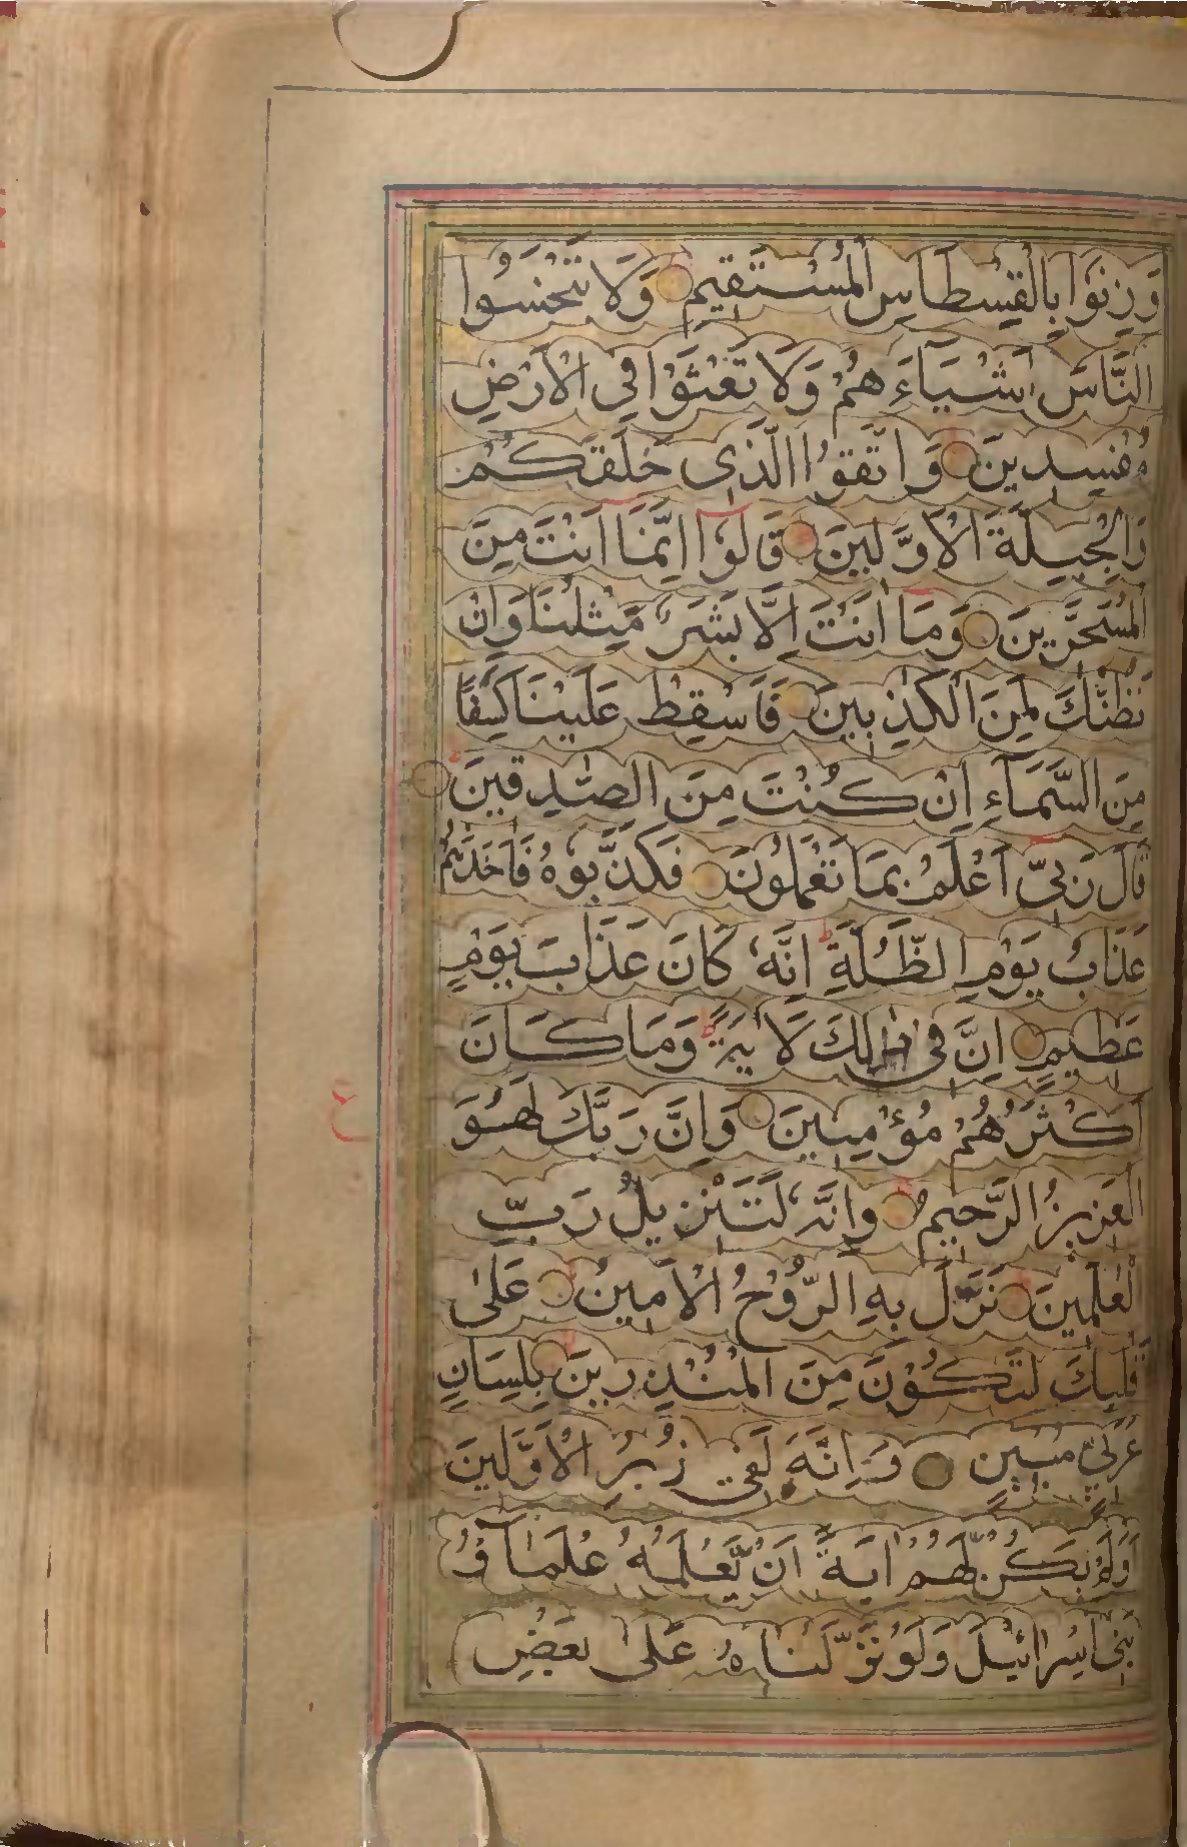 وَزِنُوَا بِالْقِسْطَاسِ الْمُسْتَقِيمِ وَلَا تَبْخَسُوا
النَّاسَ اَشْيَآءَ هُمْ وَلَا تَعْثَوْا فِى الْاَرْضِ
مُفْسِدِينَ وَاتَّقوُا الَّذِى خَلَقَكُمْ
وَالْجِبِلَّةَ الْاَوَّلِينَ قَالُوْا اِنَّمَا اَنْتَ مِنَ
الْمُسَحَّرِينَ وَمَا اَنْتَ اِلَّا بَشَرٌ مِثْلُنَا وَاِنْ
نَظُنُّكَ لَمِنَ الْكٰذِبِينَ فَاَسْقِطْ عَلَيْنَا كِسَفًا
مِنَ السَّمَآءِ اِنْ كُنْتَ مِنَ الصّٰدِقِينَ
قَالَ رَبِّىٓ اَعْلَمُ بِمَا تَعْمَلُونَ فَكَذَّبُوهُ فَاَخَذَهُمْ
عَذَابُ يَوْمِ الظُّلَّةِ ط اِنَّهُ كَانَ عَذَابَ يَوْمٍ
عَظِيمٍ اِنَّ فِى ذٰلِكَ لَاٰيَةً ط وَمَا كَانَ
اَكْثَرُهُمْ مُؤْمِنِينَ وَاِنَّ رَبَّكَ لَهُوَ
الْعَزِيزُ الرَّحِيمُ وَاِنَّهُ لَتَنْزِيلُ رَبِّ
الْعٰلَمِينَ نَزَّلَ بِهِ الرُّوْحُ الْاَمِينُ عَلٰى
قَلْبِكَ لِتَكُوْنَ مِنَ الْمُنْذِرِينَ بِلِسَانٍ
عَرَبِىٍّ مُبِينٍ وَاِنَّهُ لَفِى زُبُرِ الْاَوَّلِينَ
اَوَلَمْ يَكُنْ لَّهُمْ اٰيَةً اَنْ يَّعْلَمَهُ عُلَمَآؤُ
بَنِىٓ اِسْرَائِيْلَ وَلَوْ نَزَّلْنَاهُ عَلٰى بَعْضِ
ع